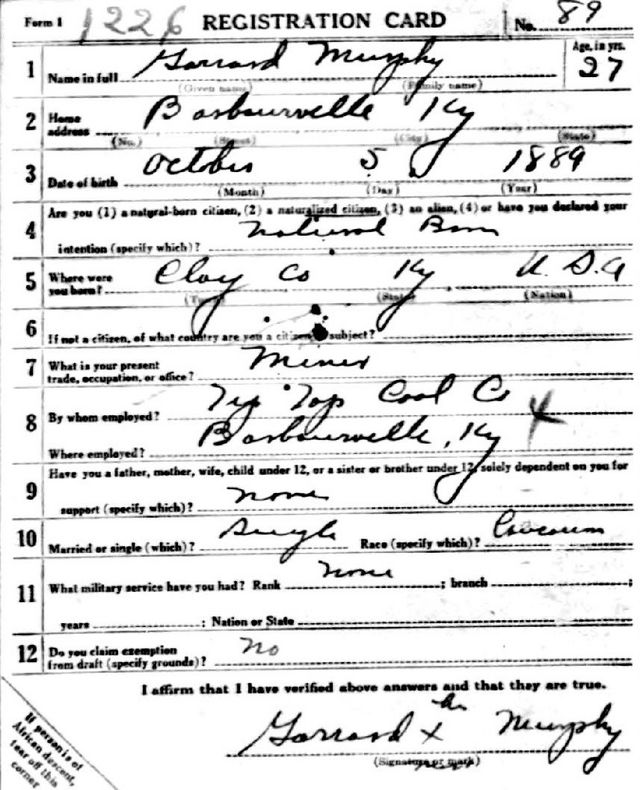 Form 1 1226 REGISTRATION CARD No. 89
1 Name in full Garrard Murphy Age, in yrs. 27
(Given name) (Family name)
2 Home address Barbourville Ky
(No.) (Street) (City) (State)
3 Date of birth October 5 1889
(Month) (Day) (Year)
4 Are you (1) a natural-born citizen, (2) a naturalized citizen, (3) an alien, (4) or have you declared your
intention (specify which)? Natural Born
5 Where were you born? Clay Co Ky U.S.A
(Town) (State) (Nation)
6 If not a citizen, of what country are you a citizen or subject?
7 What is your present trade, occupation, or office? Miner
8 By whom employed? Tip Top Coal Co
Where employed? Barbourville, Ky
9 Have you a father, mother, wife, child under 12, or a sister or brother under 12, solely dependent on you for
support (specify which)? none
10 Married or single (which)? Single Race (specify which)?
11 What military service have you had? Rank none ; branch ;
years ; Nation or State
12 Do you claim exemption from draft (specify grounds)? No
I affirm that I have verified above answers and that they are true.
Garrard x his Murphy
(Signature or mark) mark
If person is of
African descent,
tear off this
corner